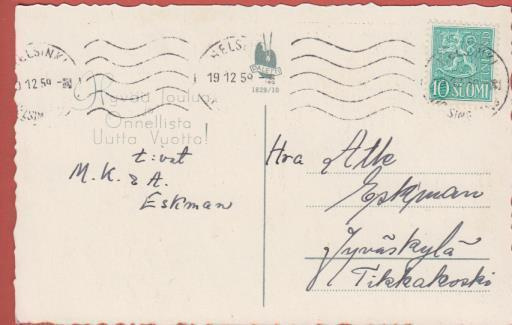 HELSINKI
19.12.59
HELSINKI
19.12.59
PALETTI
1829/10
10 SUOMI
Hyvää Joulua
ja
Onnellista
Uutta Vuotta!
t:vat
M. K. & A.
Eskman
Hra Atle
Eskman
Jyväskylä
Tikkakoski